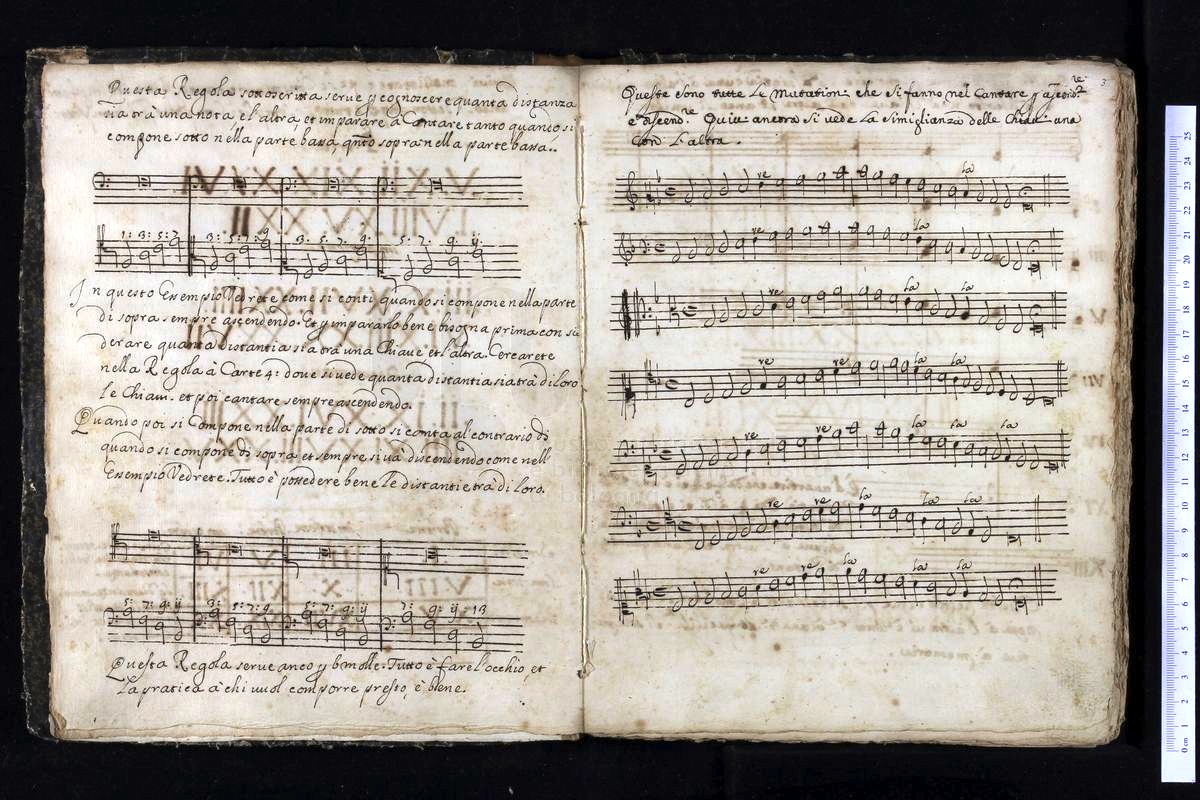 Questa Regola sottoscritta serve p cognoscere quanta distanza
sia trà una nota e l'altra, et imparare à Cantare tanto quando si
compone sotto nella parte bassa, qnto sopra nella parte bassa..
1: 3: 5: 7: 3: 5: 7: 9 3: 5: 7. 9: 5: 7. 9: ij.
In questo Essempio Vedrete come si conti quando si compone nella parte
di sopra sempre ascendendo. Et p impararlo bene bisogna prima con si
derare quanta distantia sia trà una Chiave et l'altra. Cercarete
nella Regola à Carte 4: dove si vede quanta distantia sia trà di loro
le Chiavi. et poi cantare sempre ascendendo.
Quando poi si Compone nella parte di sotto si conta al contrario di
quando si compone di sopra et sempre si và discendendo come nell'
Essempio Vedrete. Tutto è possedere bene le distantie trà di loro.
5: 7: 9: ij 3: 5: 7: 9 5: 7: 9: ij 7: 9: ij 13
Questa Regola serve anco p b molle: Tutto è fare l'occhio, et
la pratica à chi vuol comporre presto, è bene.
3
Queste sono tutte le Mutationi che si fanno nel Cantare p
e Qui ancora si vede la simiglianza delle Chiavi una
con l'altra.
re la
re la
re la la
re re la la
re re la la
re re la la la
re re la la la